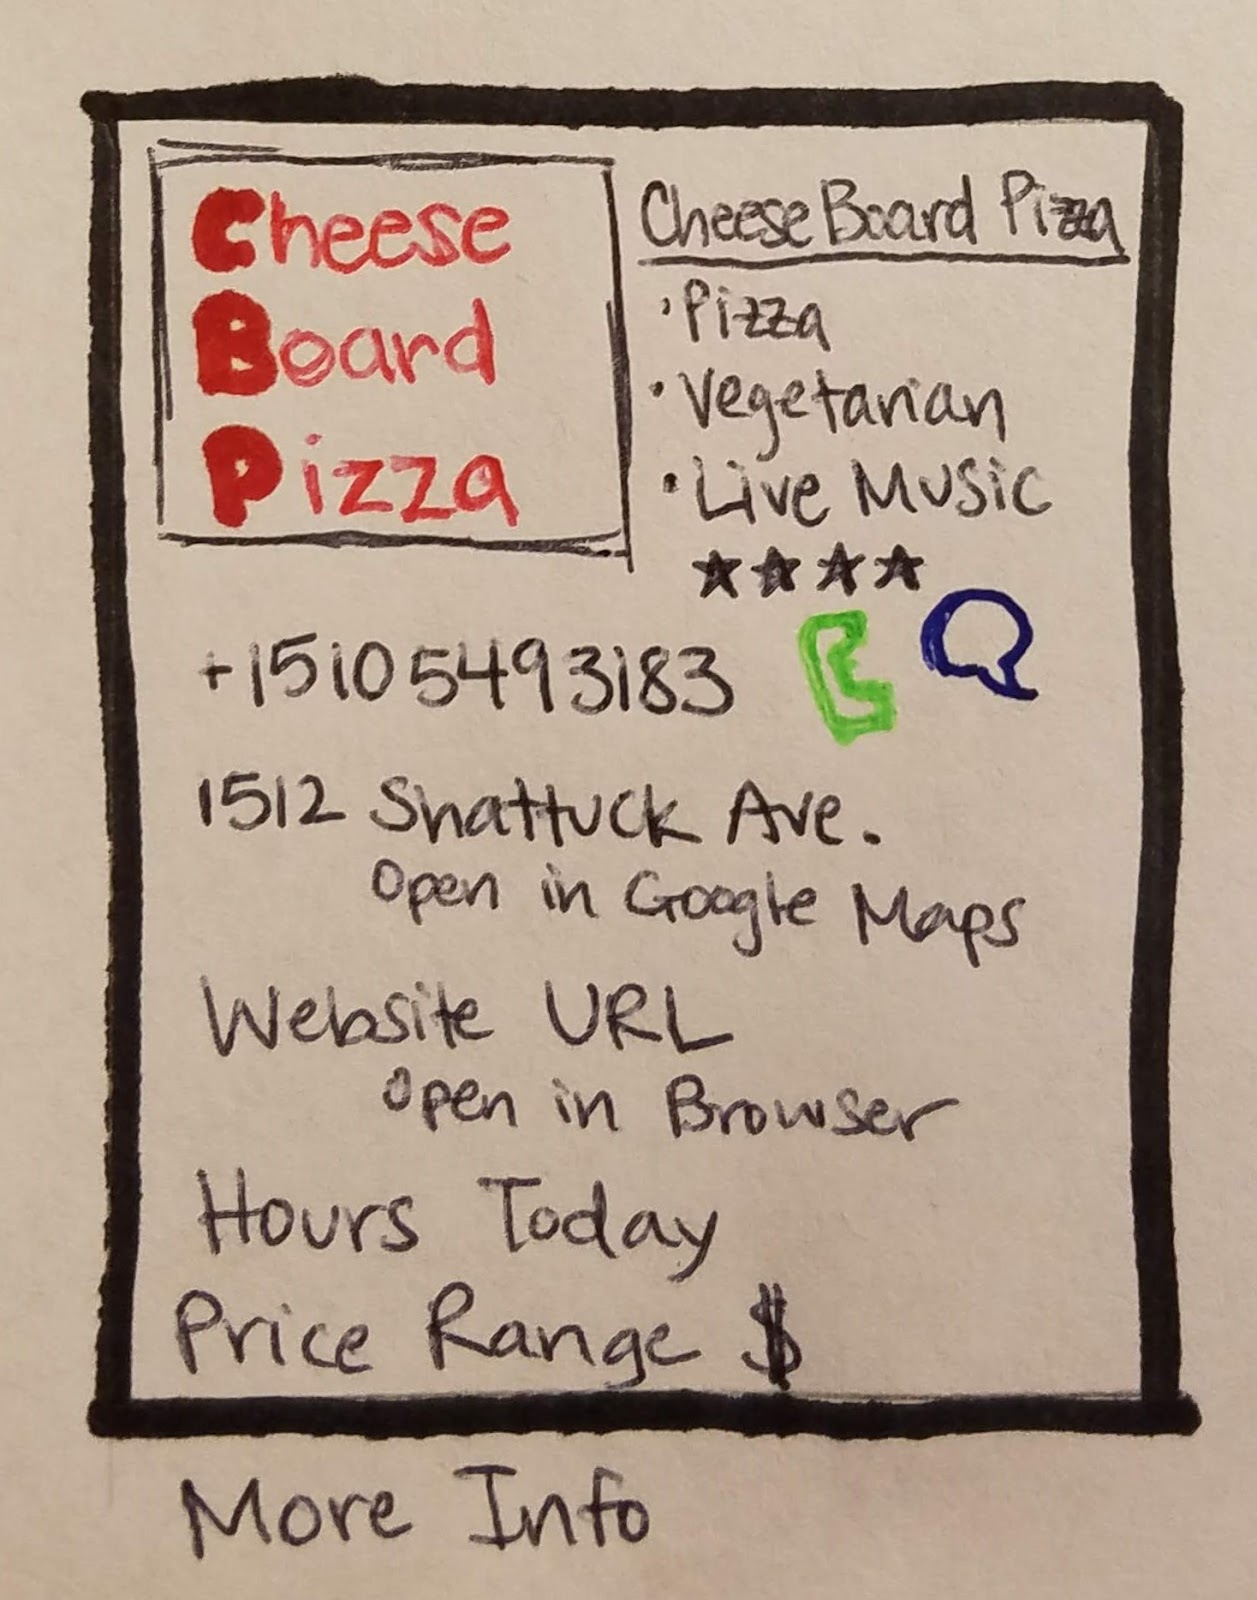 Cheese
Board
Pizza
CheeseBoard Pizza
· Pizza
· Vegetarian
· Live Music
★★★★
+15105493183
1512 Shattuck Ave.
Open in Google Maps
Website URL
Open in Browser
Hours Today
Price Range $
More Info